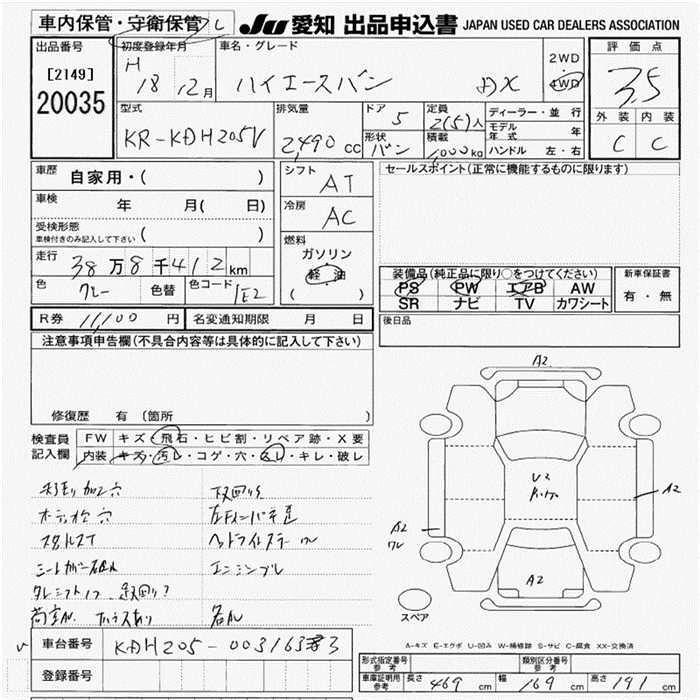 車内保管・守衛保管 し
JU 愛知 出品申込書 JAPAN USED CAR DEALERS ASSOCIATION
出品番号
[2149]
20035
初度登録年月
H
18 12月
車名・グレード
ハイエースバン DX
2WD
4WD
評価点
3.5
外装 内装
C C
型式
KR-KDH205V
排気量
2,490 cc
ドア 5
形状 バン
定員 2(5)人
積載 1,000kg
ディーラー・並行
モデル年式 年
ハンドル 左・右
車歴
自家用・( )
車検
年 月( 日)
受検形態
車検付きのみ記入して下さい ( )
走行
38万8千412km
色 グレー 色替 色コード 1E2
シフト AT
冷房 AC
燃料
ガソリン
軽油
( )
セールスポイント(正常に機能するものに限ります)
装備品(純正品に限り○をつけてください)
PS PW エアB AW
SR ナビ TV カワシート
新車保証書
有・無
R券 11,100 円 名変通知期限 月 日
後日品
注意事項申告欄(不具合内容等は具体的に記入して下さい)
修復歴 有(箇所 )
検査員
記入欄
FW キズ・飛石・ヒビ割・リペア跡・X要
内装 キズ・汚レ・コゲ・穴・スレ・キレ・破レ
下回りS
スタルスT
エンジンブレ
A2
U2
A2
A2
A2
スペア
A-キズ E-エクボ U-凹み W-補修跡 S-サビ C-腐食 XX-交換済
車台番号 KDH205-0031633
登録番号
形式指定番号
参考
類別区分番号
参考
車庫証明用
参考
長さ 469 cm 幅 169 cm 高さ 191 cm